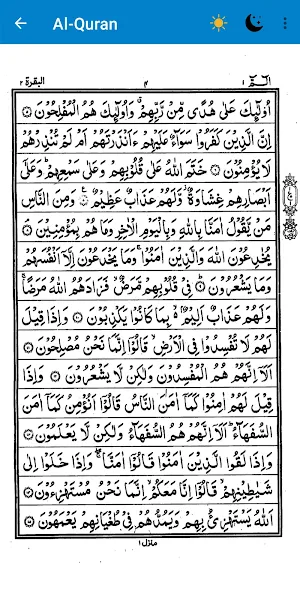 Al-Quran
البقرة ٢
٤
الٓمّٓ ١
اُولٰٓئِكَ عَلٰى هُدًى مِّنْ رَّبِّهِمْ ۙ وَاُولٰٓئِكَ هُمُ الْمُفْلِحُوْنَ ۝
اِنَّ الَّذِيْنَ كَفَرُوْا سَوَآءٌ عَلَيْهِمْ ءَاَنْذَرْتَهُمْ اَمْ لَمْ تُنْذِرْهُمْ
لَا يُؤْمِنُوْنَ ۝ خَتَمَ اللّٰهُ عَلٰى قُلُوْبِهِمْ وَعَلٰى سَمْعِهِمْ ؕ وَعَلٰٓى
اَبْصَارِهِمْ غِشَاوَةٌ ؗ وَّلَهُمْ عَذَابٌ عَظِيْمٌ ۝ وَمِنَ النَّاسِ
مَنْ يَّقُوْلُ اٰمَنَّا بِاللّٰهِ وَبِالْيَوْمِ الْاٰخِرِ وَمَا هُمْ بِمُؤْمِنِيْنَ ۝
يُخٰدِعُوْنَ اللّٰهَ وَالَّذِيْنَ اٰمَنُوْا ۚ وَمَا يَخْدَعُوْنَ اِلَّاۤ اَنْفُسَهُمْ
وَمَا يَشْعُرُوْنَ ۝ فِيْ قُلُوْبِهِمْ مَّرَضٌ ۙ فَزَادَهُمُ اللّٰهُ مَرَضًا ۚ
وَلَهُمْ عَذَابٌ اَلِيْمٌۢ ۙ بِمَا كَانُوْا يَكْذِبُوْنَ ۝ وَاِذَا قِيْلَ
لَهُمْ لَا تُفْسِدُوْا فِي الْاَرْضِ ۙ قَالُوْٓا اِنَّمَا نَحْنُ مُصْلِحُوْنَ ۝
اَلَآ اِنَّهُمْ هُمُ الْمُفْسِدُوْنَ وَلٰكِنْ لَّا يَشْعُرُوْنَ ۝ وَاِذَا
قِيْلَ لَهُمْ اٰمِنُوْا كَمَآ اٰمَنَ النَّاسُ قَالُوْٓا اَنُؤْمِنُ كَمَآ اٰمَنَ
السُّفَهَآءُ ؕ اَلَآ اِنَّهُمْ هُمُ السُّفَهَآءُ وَلٰكِنْ لَّا يَعْلَمُوْنَ ۝
وَاِذَا لَقُوا الَّذِيْنَ اٰمَنُوْا قَالُوْٓا اٰمَنَّا ۖۚ وَاِذَا خَلَوْا اِلٰى
شَيٰطِيْنِهِمْ ۙ قَالُوْٓا اِنَّا مَعَكُمْ ۙ اِنَّمَا نَحْنُ مُسْتَهْزِءُوْنَ ۝
اَللّٰهُ يَسْتَهْزِئُ بِهِمْ وَيَمُدُّهُمْ فِيْ طُغْيَانِهِمْ يَعْمَهُوْنَ ۝
منزل ١